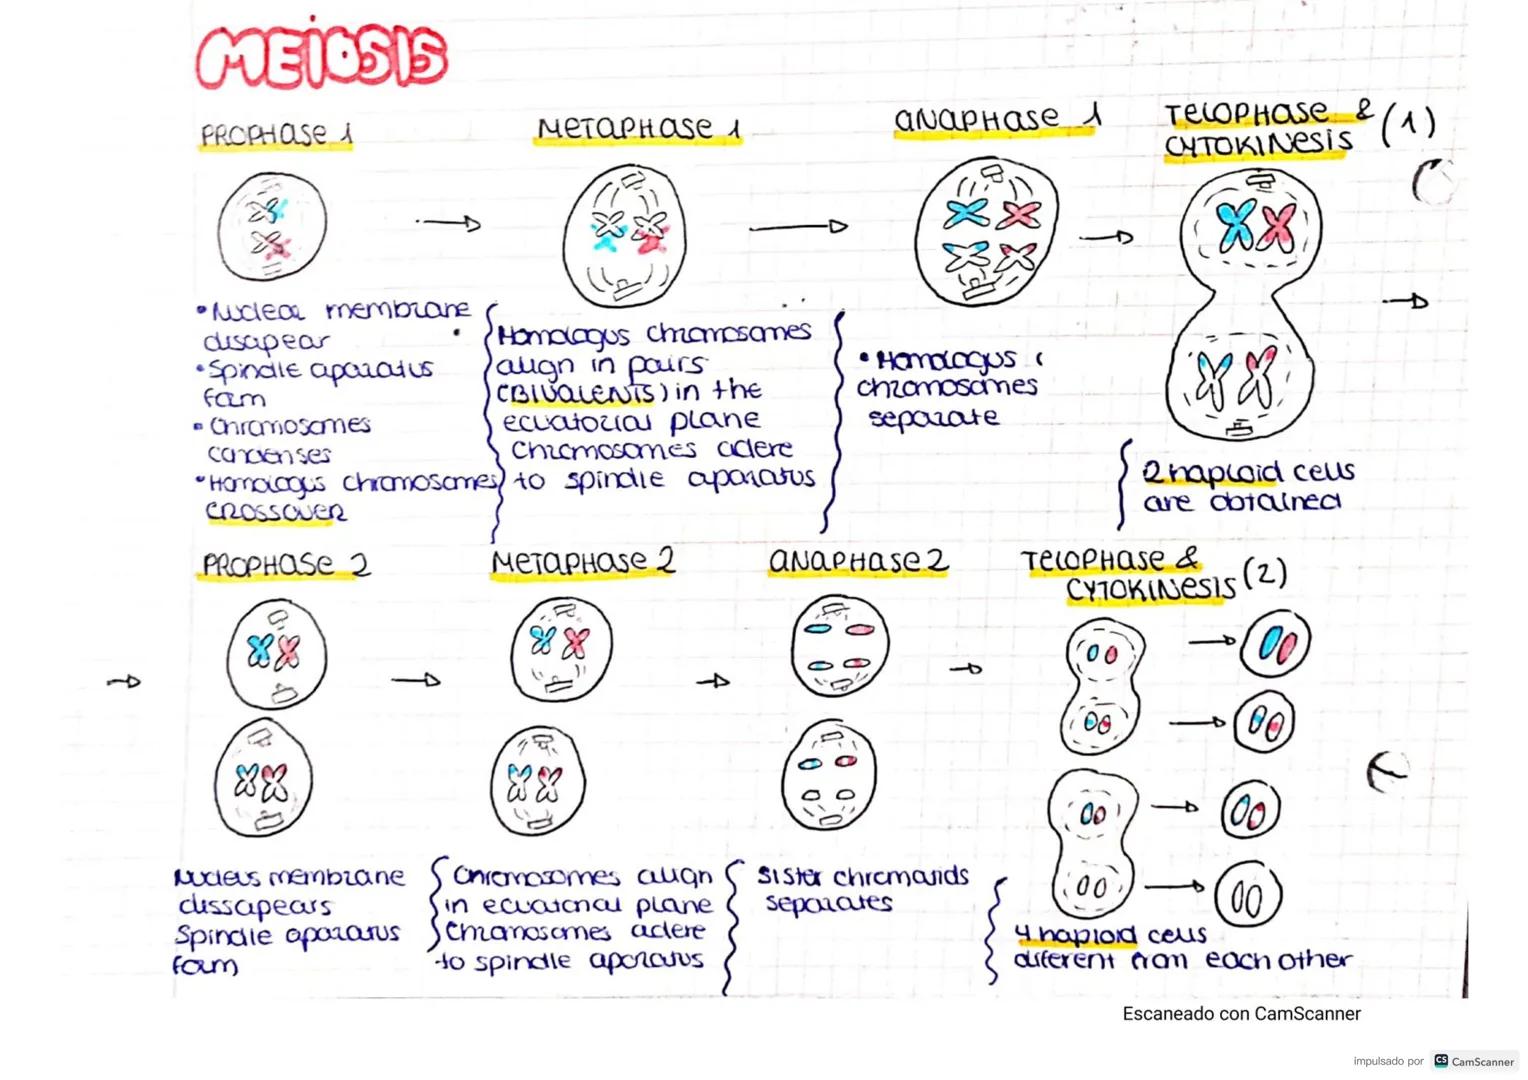 MEIOSIS
PROPHASE 1
METAPHASE 1
ANAPHASE 1
TELOPHASE &
CYTOKINESIS (1)
• Nuclear membrane
disapear
• Spindle aparatus
form
• Chromosomes
condenses
• Homologus chromosomes
CROSSOVER
Homologus chromosomes
align in pairs
(BIVALENTS) in the
ecuatorial plane
Chromosomes adere
to spindle aparatus
• Homologus
chromosomes
separate
2 haploid cells
are obtained
PROPHASE 2
METAPHASE 2
ANAPHASE 2
TELOPHASE &
CYTOKINESIS (2)
Nucleus membrane
dissapears
Spindle aparatus
form
Chromosomes align
in ecuatorial plane
Chromosomes adere
to spindle aparatus
Sister chromatids
separates
4 haploid cells
different from each other
Escaneado con CamScanner
impulsado por CS CamScanner